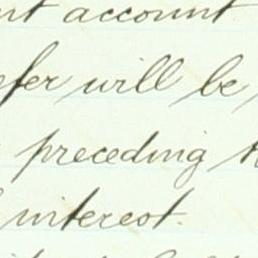 account
will be
preceding
interest.